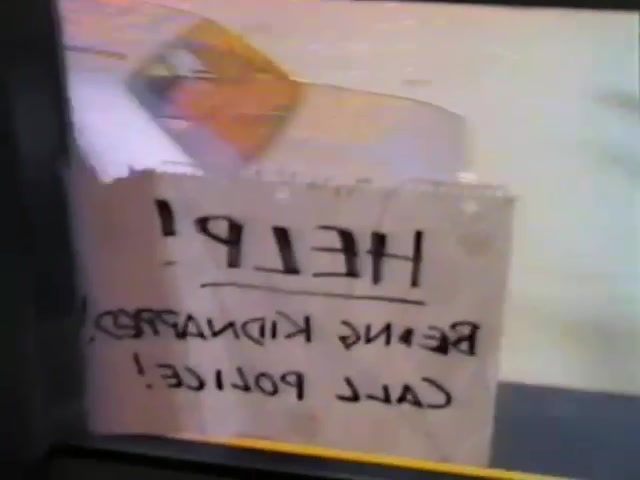 HELP!
BEING KIDNAPPED!
CALL POLICE!